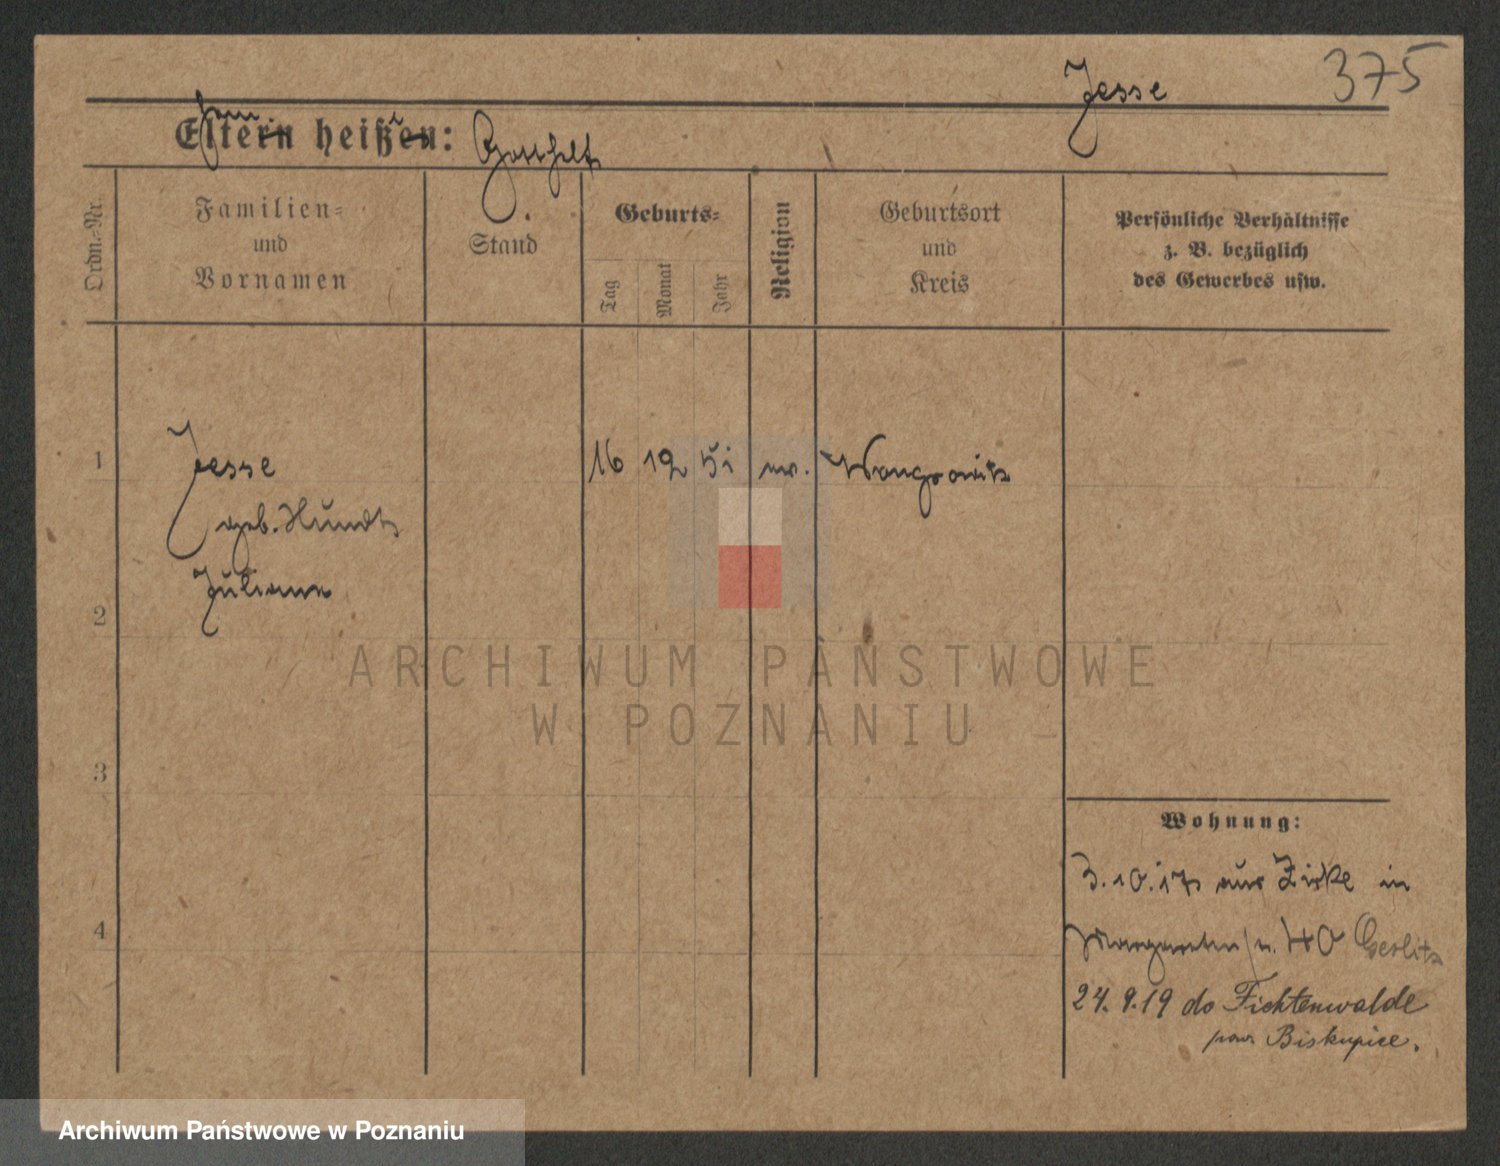 Jesse 375
Eltern heißen: Gotthelf
Ordn.-Nr.
Familien-
und
Vornamen
Stand
Geburts-
Tag
Monat
Jahr
Religion
Geburtsort
und
Kreis
Persönliche Verhältnisse
z. B. bezüglich
des Gewerbes usw.
1 Jesse 16 12 51 ev. Wongrowitz
geb. Hundt
Juliane
2
3
4
Wohnung:
3.10.17 aus Zirke in
40 Gerlitz
24.9.19 do Fichtenwalde
pow Biskupice.
ARCHIWUM PAŃSTWOWE
W POZNANIU
Archiwum Państwowe w Poznaniu